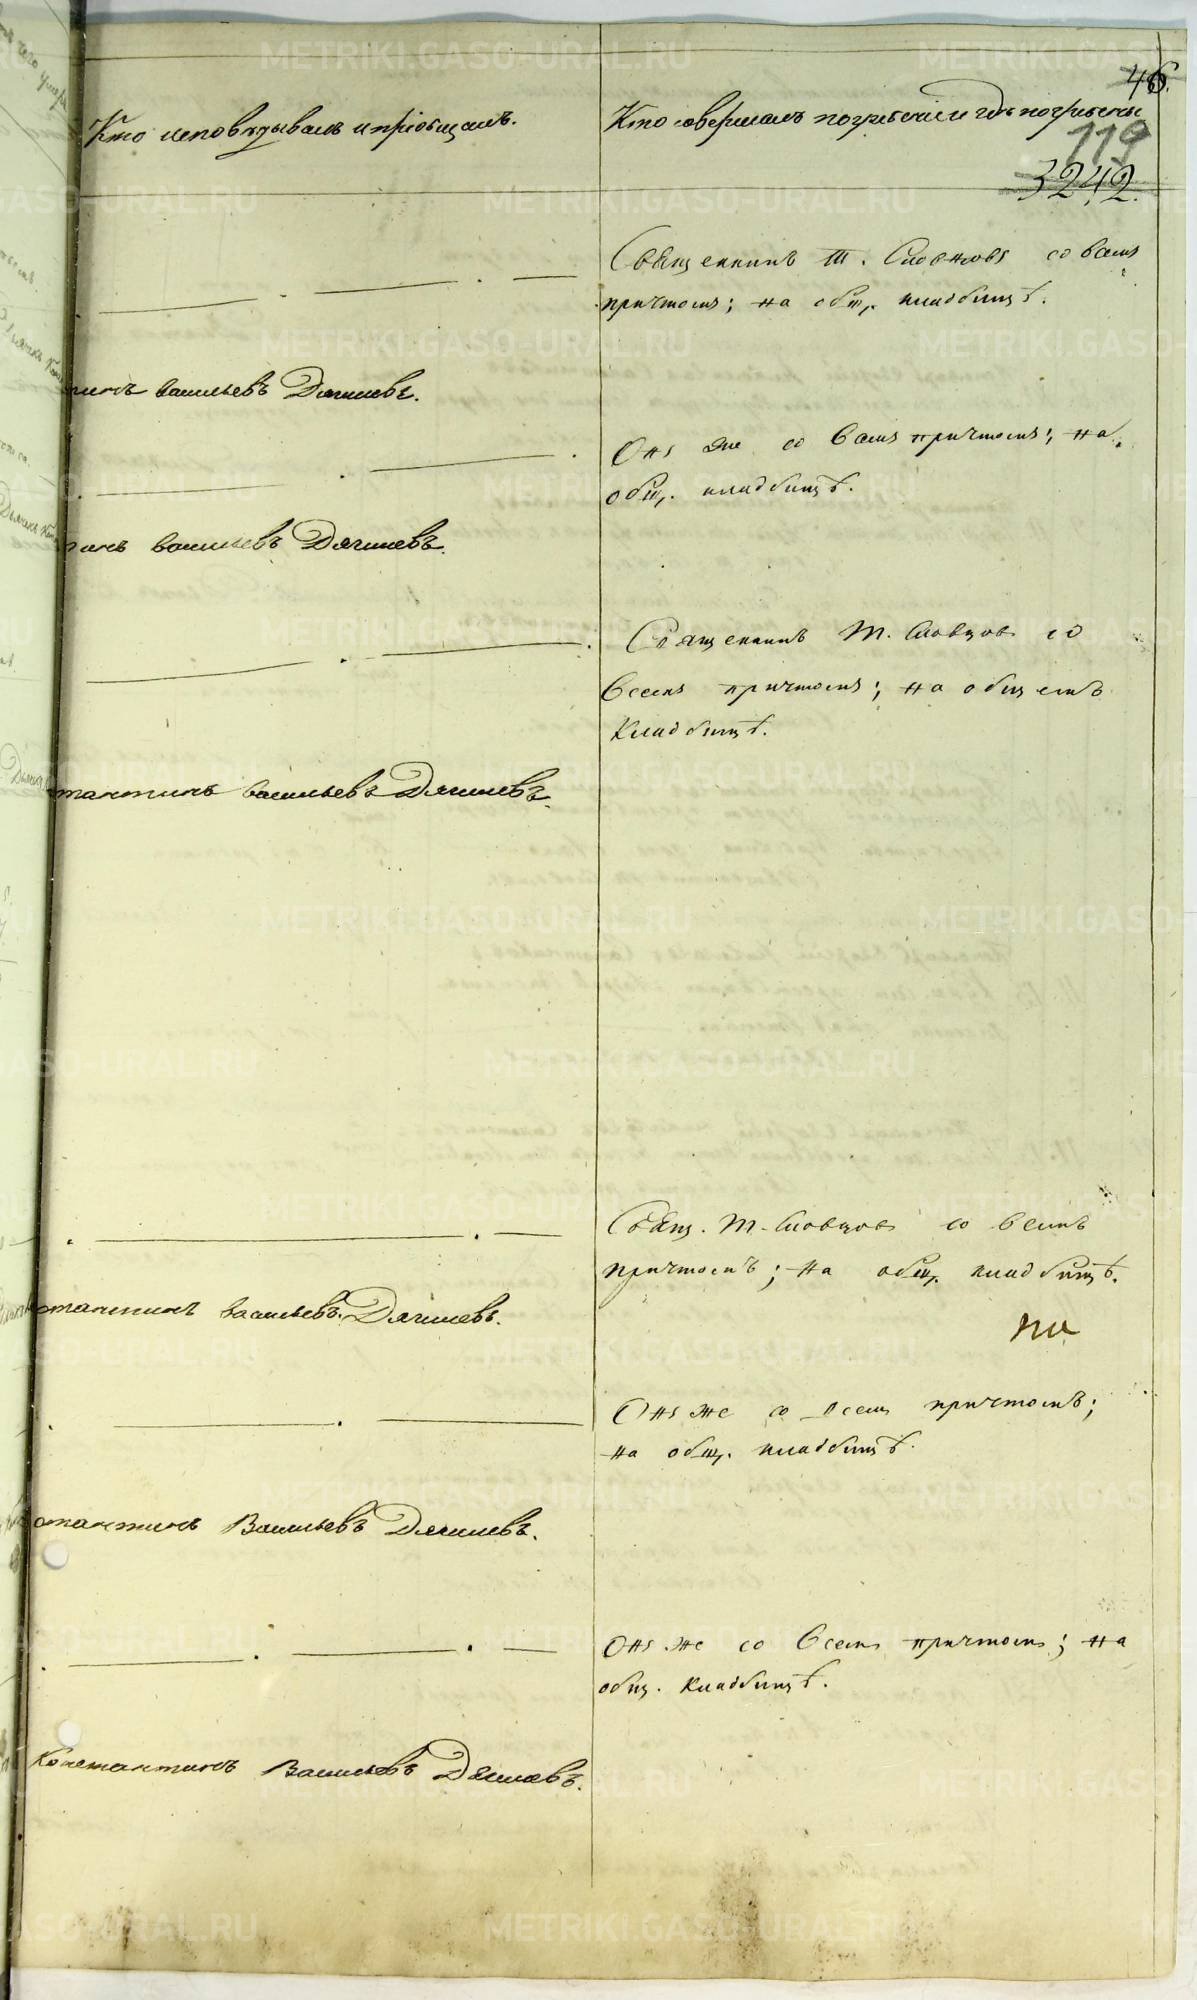 46.
Кто исповѣдывалъ и пріобщалъ.
Кто совершалъ погребеніе и гдѣ погребены
119
3242.
Священникъ Т. Словцовъ со всѣмъ
причтомъ; на общ. кладбищѣ.
тинъ Васильевъ Дягилевъ.
Онъ же со всѣмъ причтомъ; на
общ. кладбищѣ.
тинъ Васильевъ Дягилевъ.
Священникъ Т. Словцовъ со
всемъ причтомъ; на общемъ
кладбищѣ.
стантинъ Васильевъ Дягилевъ.
Свящ. Т. Словцовъ со всемъ
причтомъ; на общ. кладбищѣ.
стантинъ Васильевъ Дягилевъ.
Онъ же со всемъ причтомъ;
на общ. кладбищѣ.
стантинъ Васильевъ Дягилевъ.
Онъ же со всемъ причтомъ; на
общ. кладбищѣ.
Константинъ Васильевъ Дягилевъ.
METRIKI.GASO-URAL.RU